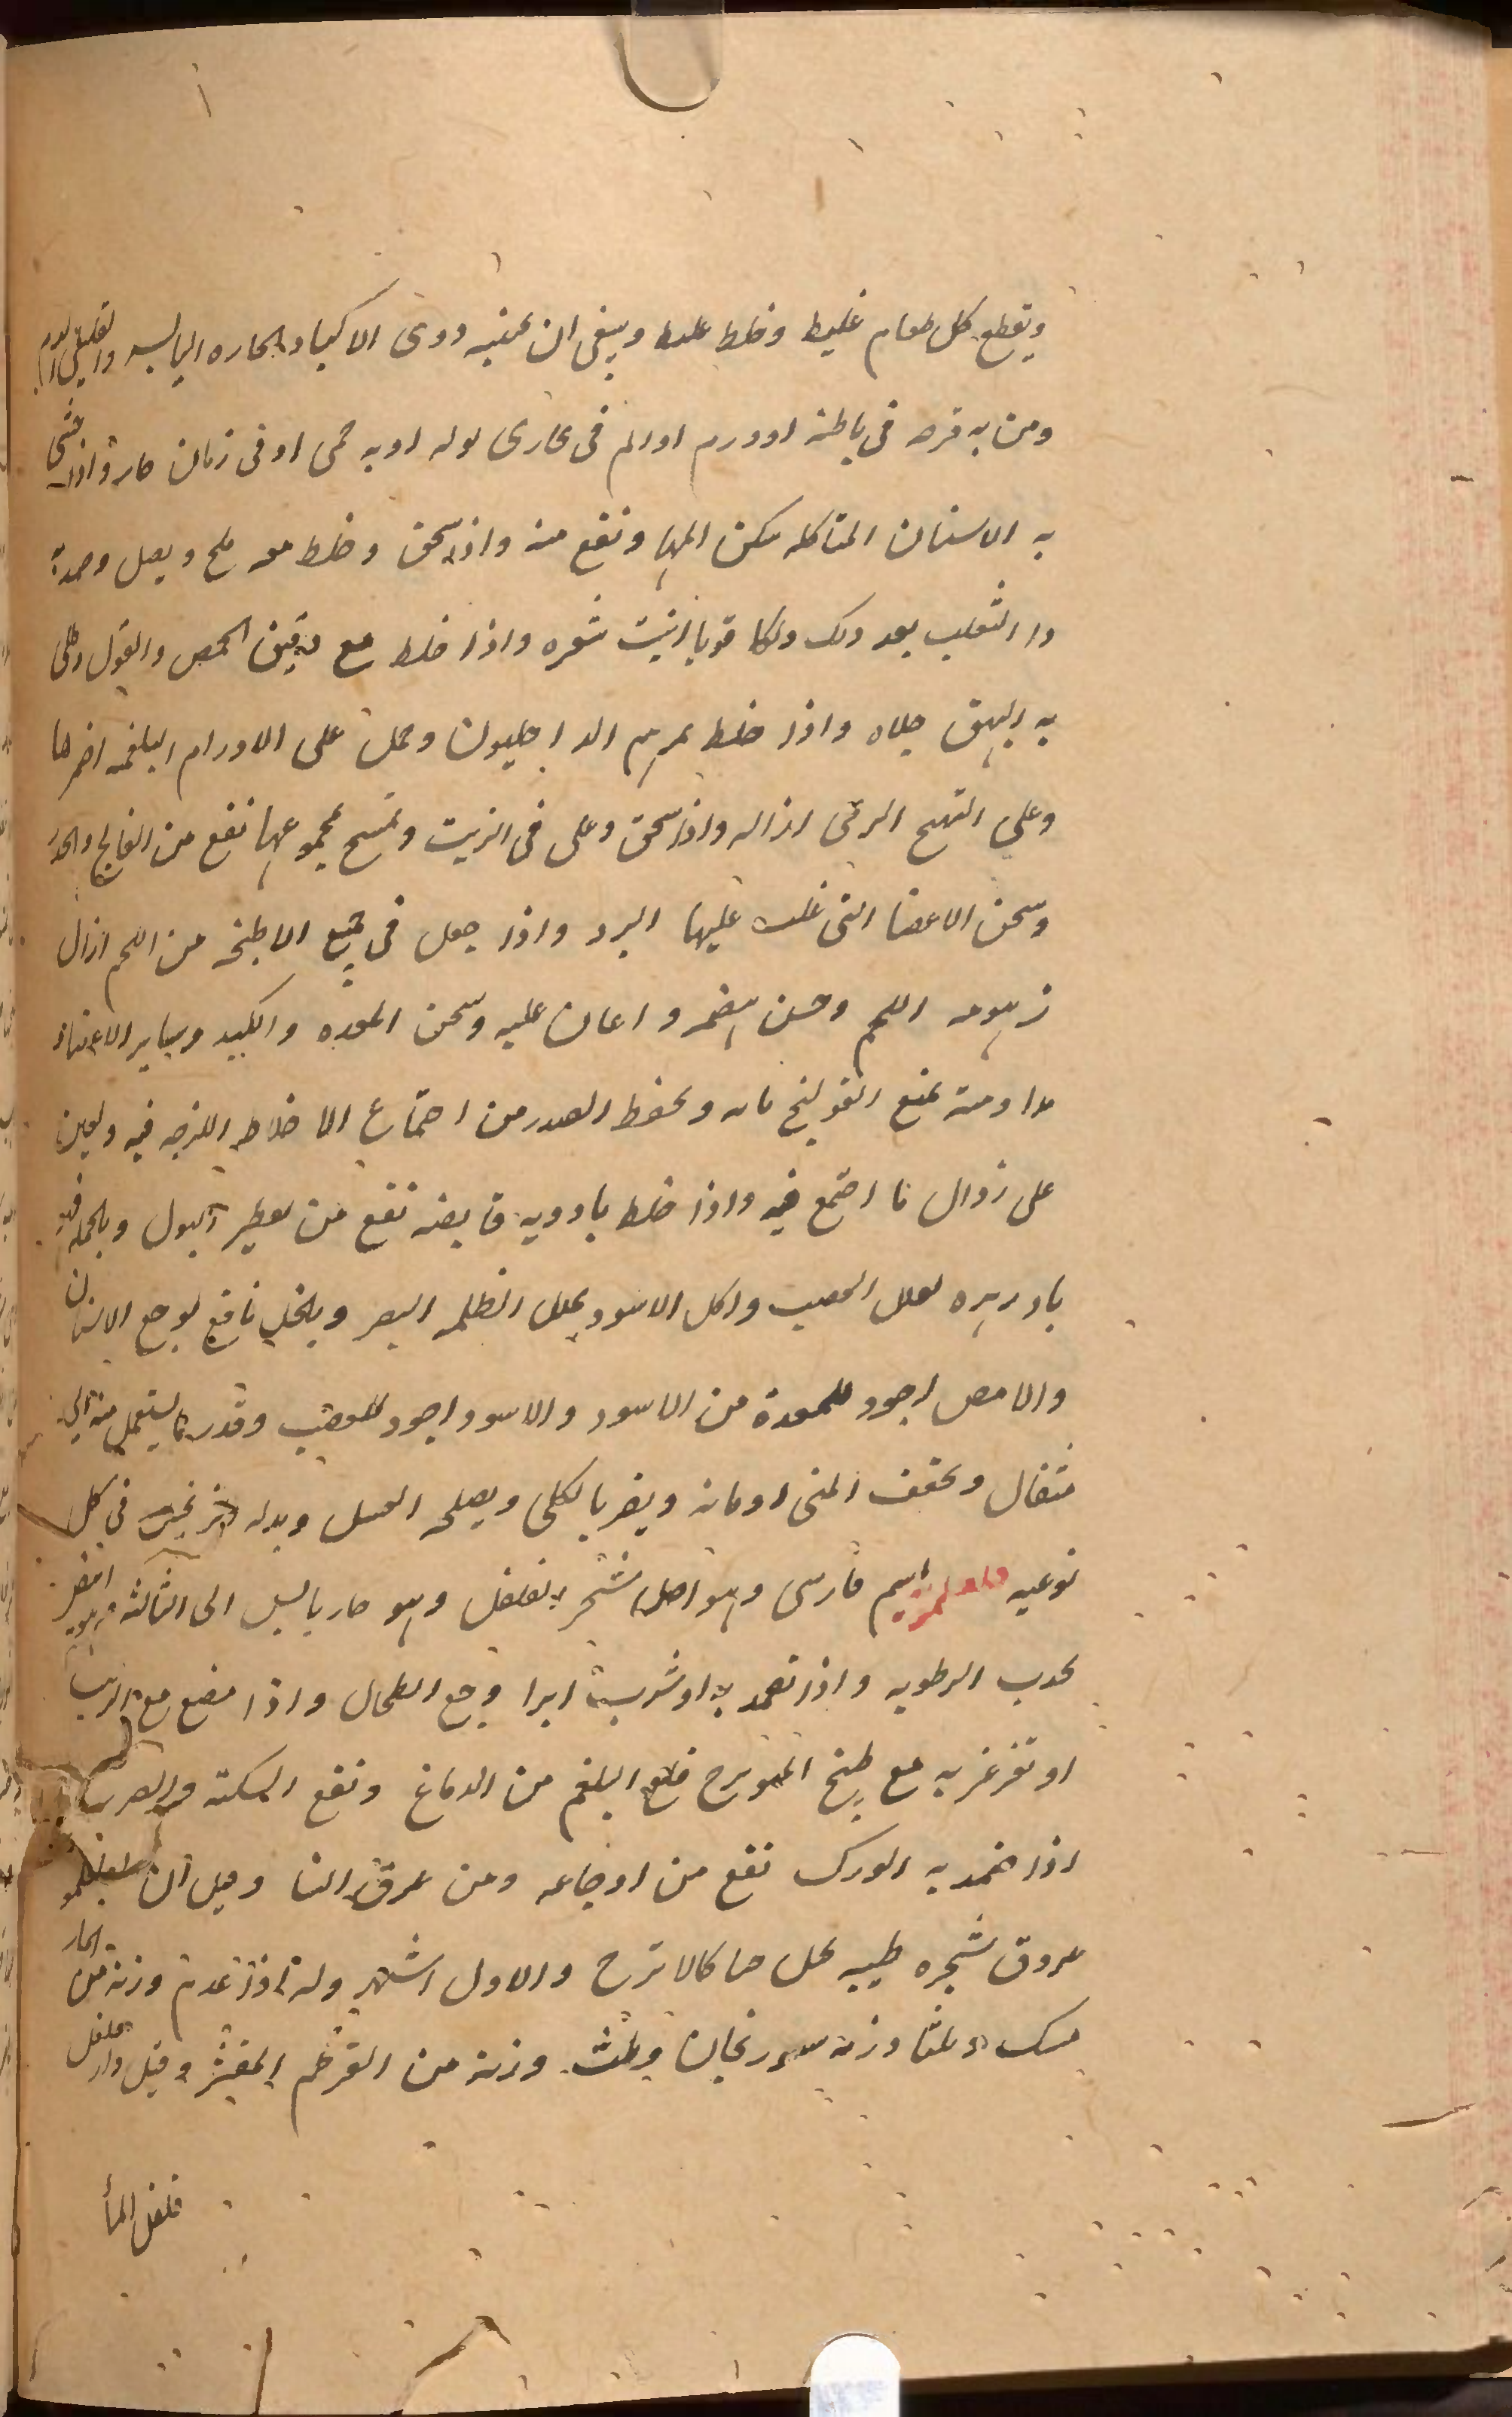 ويقطع كل طعام غليظ وخلط غليظ وينبغى ان يجتنبه ذوى الاكباد الحاره اليابسه والقليلى الدم
ومن به قرحه فى باطنه او ورم او الم فى مجارى بوله او به حمى او فى زمان حار واذا حشى
به الاسنان المتاكله سكن المها ونفع منه واذا سحق وخلط معه ملح وبصل وضمد به
دا الثعلب بعد دلك دلكا قويا انبت شعره واذا خلط مع دقيق الحمص والفول وطلى
به البهق جلاه واذا خلط بمرهم الداخليون وحمل على الاورام البلغميه اضمرها
وعلى التهيج الريحى ازاله واذا سحق وغلى فى الزيت وتمسح بمجموعهما نفع من الفالج والخدر
وسخن الاعضا التى غلب عليها البرد واذا جعل فى جميع الاطبخه من اللحم ازال
زهومه اللحم وحسن هضمه واعان عليه وسخن المعده والكبد وساير الاعضاء
مداومته تمنع القولنج ويحفظ الصدر من اجتماع الاخلاط اللزجه فيه ويعين
على زوال ما اجتمع فيه واذا خلط بادويه قابضه نفع من تقطير البول وبالجمله فهو
بادزهره لعلل العصب واكل الاسود يحلل الظلمه البصر وبالخل نافع لوجع الاسنان
والابيض اجود للمعدة من الاسود والاسود اجود للعصب وقدر ما يستعمل منه الى
مثقال ويجفف المنى ادمانه ويضر بالكلى ويصلحه العسل وبدله الزنجبيل فى كل
نوعيه فلفلمويه اسم فارسى وهو اصل شجر الفلفل وهو حار يابس الى الثالثه وهو
يجذب الرطوبه واذا تضمد به او شرب ابرا وجع الطحال واذا مضغ مع الزبيب
او تغرغر به مع طبيخ الميويزج قلع البلغم من الدماغ ونفع السكته والصرع
اذا ضمد به الورك نفع من اوجاعه ومن عرق النسا وقيل ان الفلفلمو
عروق شجره طيبه تحمل حبا كالاترج والاول اشهر وله اذا عدم وزنه من
وثلثا وزنه سورنجان وثلث وزنه من القرطم المقشر وقيل دارفلفل
فلفل الما